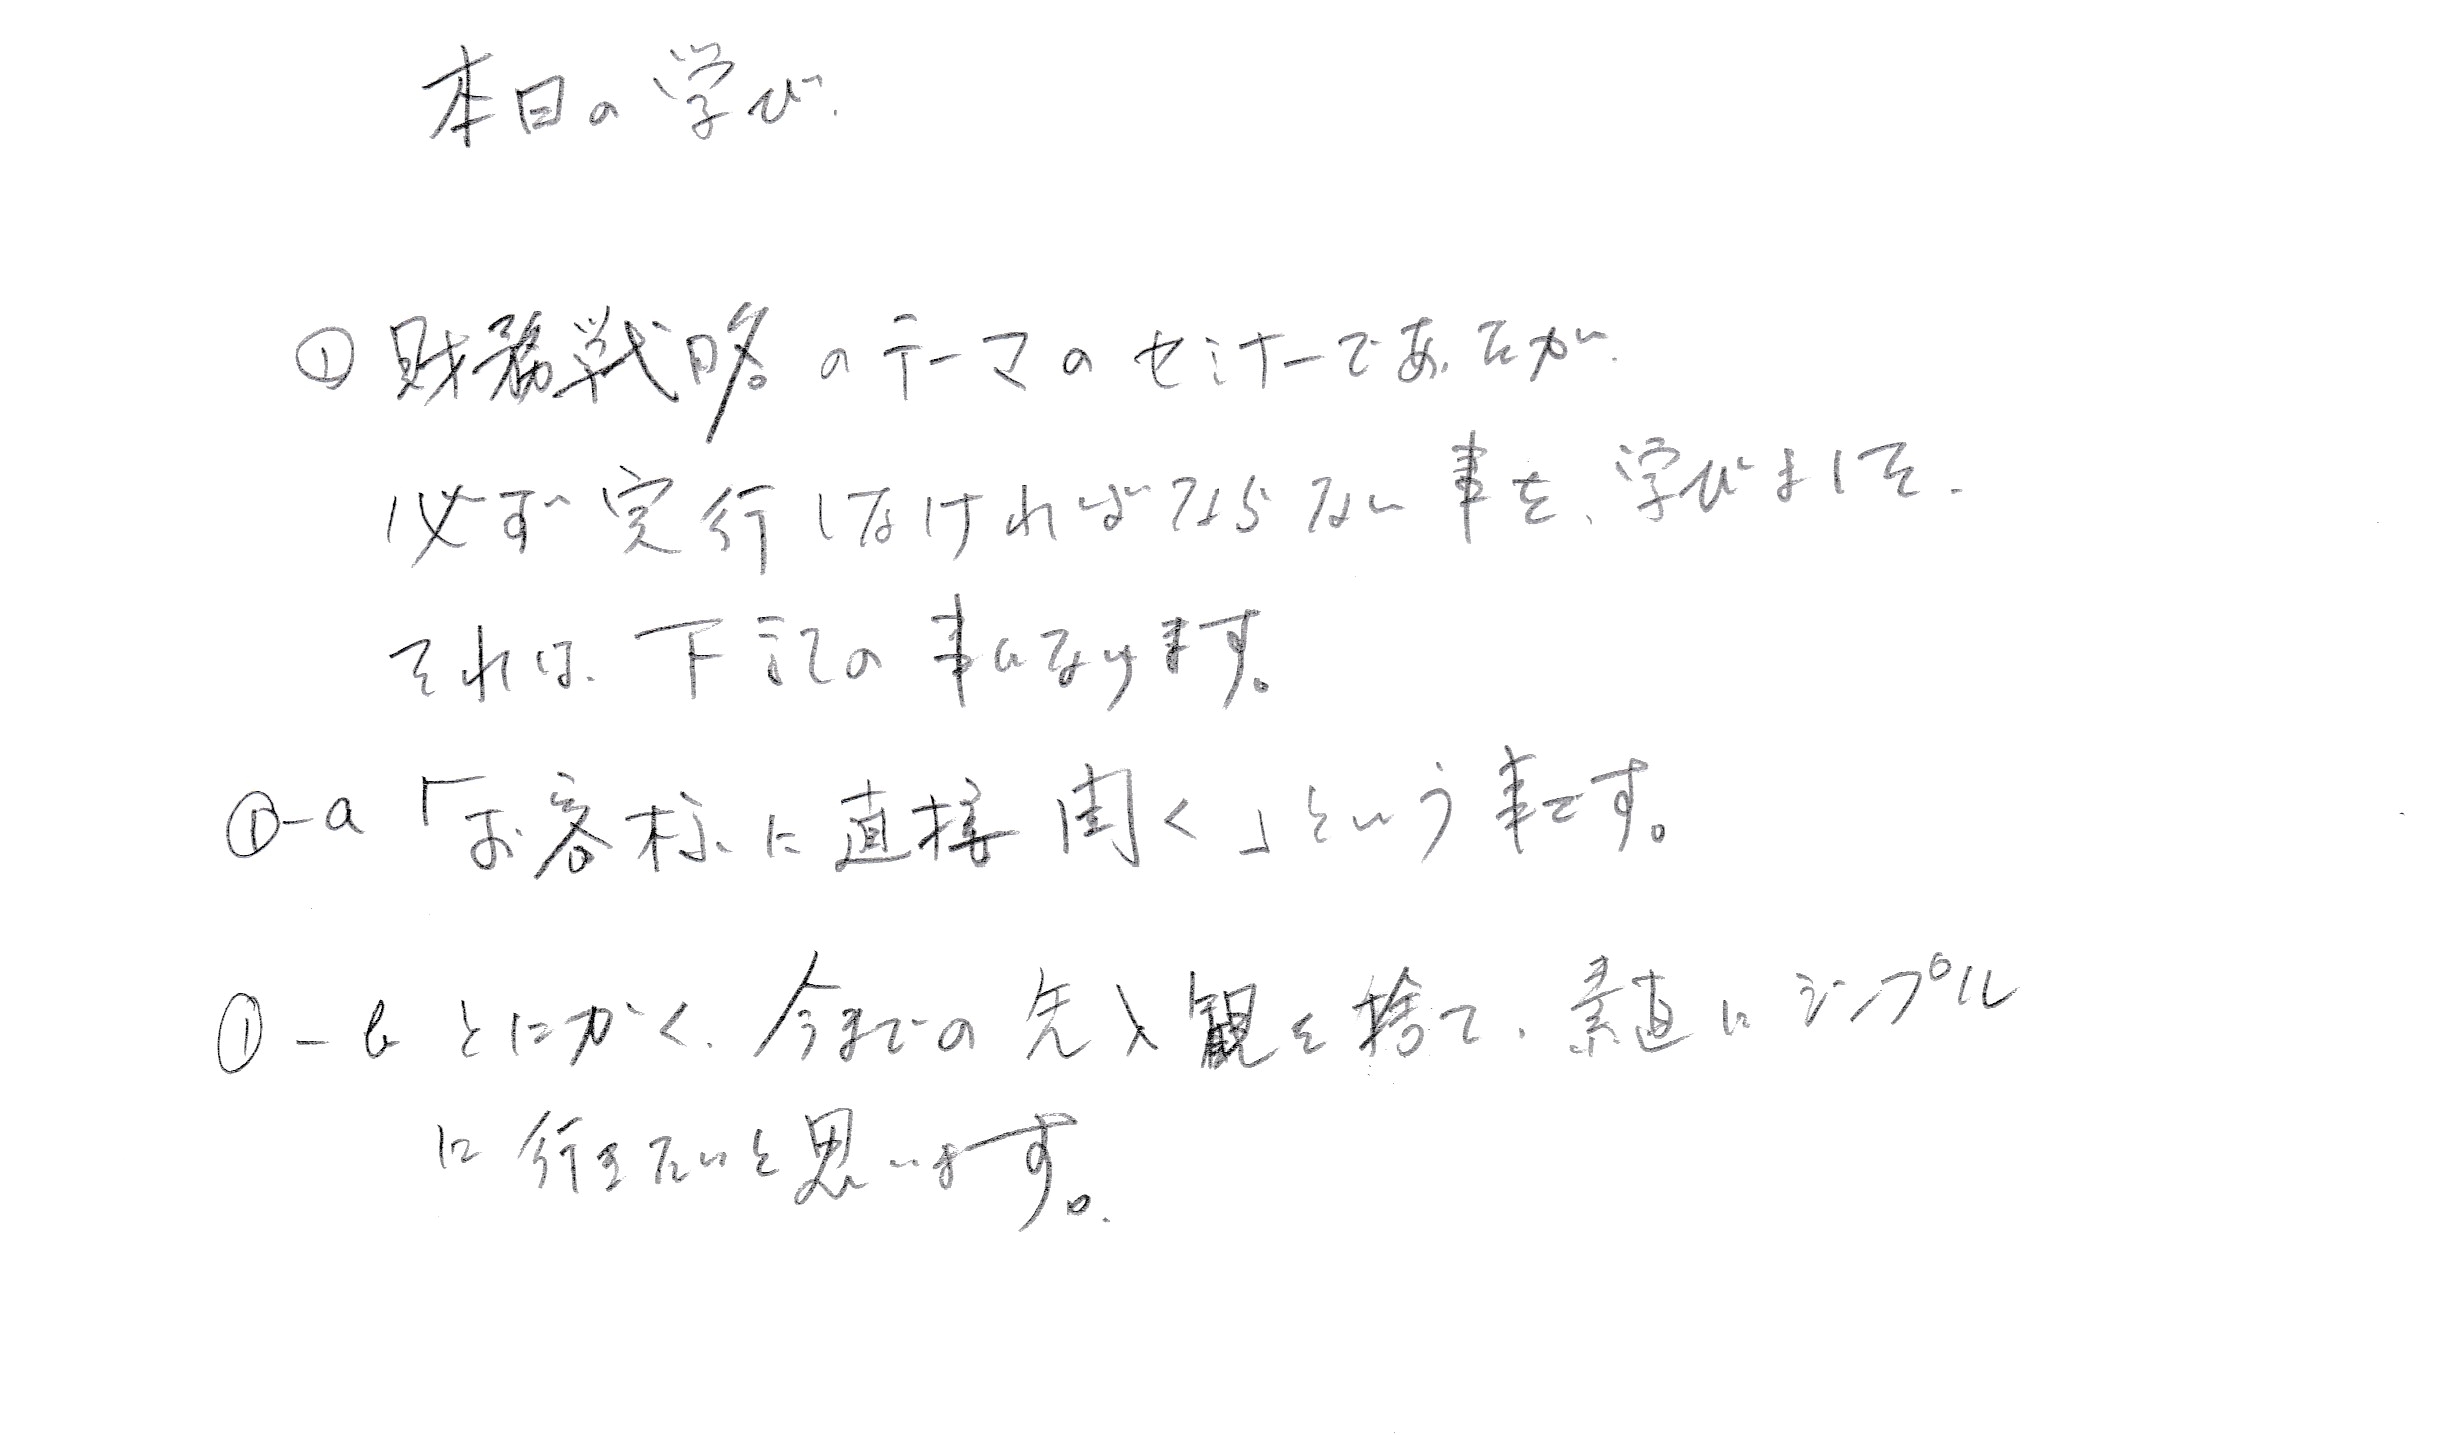 本日の学び.
① 財務戦略のテーマのセミナーであったが.
必ず実行しなければならない事を、学びました.
それは、下記の事になります。
①-a 「お客様に直接聞く」という事です。
①-b とにかく、今までの先入観を捨て、素直にシンプル
に行きたいと思います。